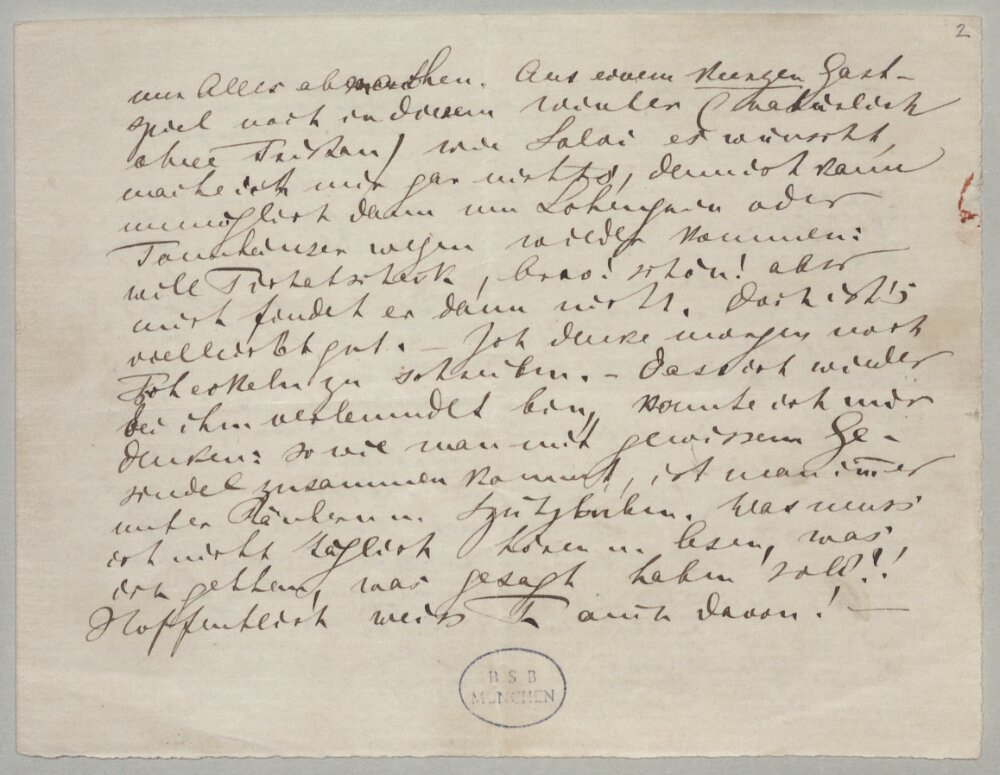 2
nur Alles abmachen. Aus einem kurzen Gast-
spiel noch in diesem Winter (natürlich
ohne Tristan) wie Salvi es wünscht,
mache ich mir gar nichts, denn ich kann
unmöglich dann um Lohengrin oder
Tannhäuser wegen wieder kommen:
will Tichatscheck, bravo! schön! aber
mich findet er dann nicht. Doch ist's
vielleicht gut. – Ich denke morgen noch
zu schreiben. – Dass ich wieder
bei ihm verleumdet bin, konnte ich mir
denken: so wie man mit gewissem Ge-
sindel zusammen kommt, ist man immer
unter Räubern u. Spitzbuben. Was muss
ich nicht täglich hören u. lesen, was
ich gethan, was gesagt haben soll!!
Hoffentlich weiss T. auch davon! —
BSB
MÜNCHEN